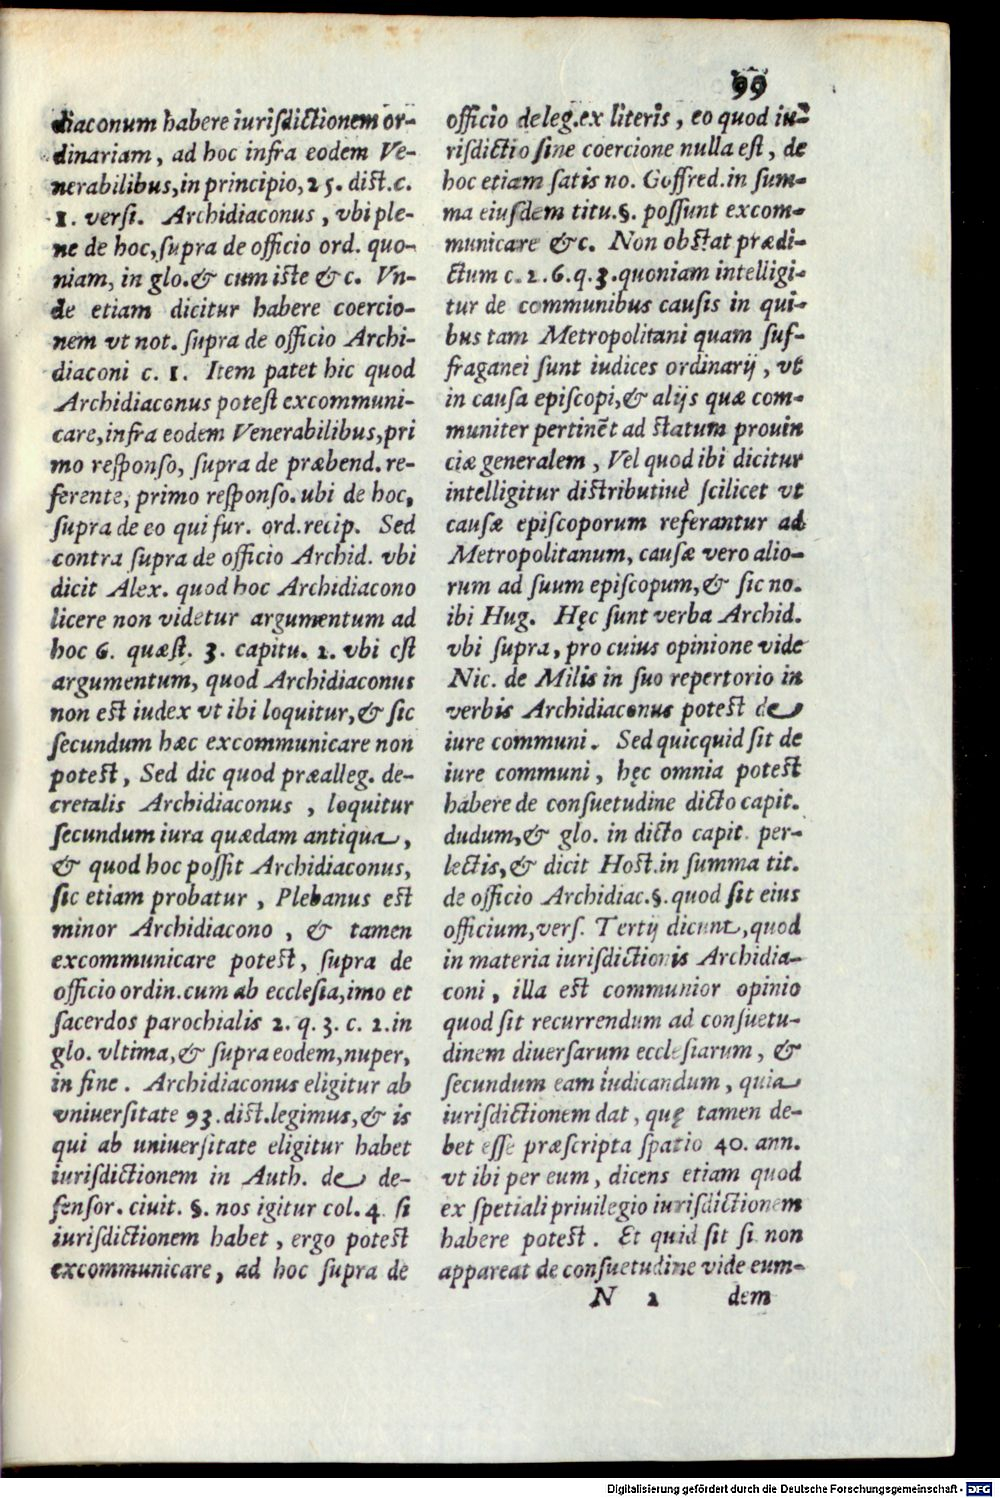 99
diaconum habere iurisdictionem or-
dinariam, ad hoc infra eodem Ve-
nerabilibus, in principio, 25. dist. c.
1. versi. Archidiaconus, vbi ple-
ne de hoc, supra de officio ord. quo-
niam, in glo. & cum iste & c. Vn-
de etiam dicitur habere coercio-
nem vt not. supra de officio Archi-
diaconi c. 1. Item patet hic quod
Archidiaconus potest excommuni-
care, infra eodem Venerabilibus, pri
mo responso, supra de præbend. re-
ferente, primo responso. ubi de hoc,
supra de eo qui fur. ord. recip. Sed
contra supra de officio Archid. vbi
dicit Alex. quod hoc Archidiacono
licere non videtur argumentum ad
hoc 6. quæst. 3. capitu. 2. vbi est
argumentum, quod Archidiaconus
non est iudex vt ibi loquitur, & sic
secundum hæc excommunicare non
potest, Sed dic quod præalleg. de-
cretalis Archidiaconus, loquitur
secundum iura quædam antiqua,
& quod hoc possit Archidiaconus,
sic etiam probatur, Plebanus est
minor Archidiacono, & tamen
excommunicare potest, supra de
officio ordin. cum ab ecclesia, imo et
sacerdos parochialis 2. q. 3. c. 2. in
glo. vltima, & supra eodem, nuper,
in fine. Archidiaconus eligitur ab
vniuersitate 93. dist. legimus, & is
qui ab uniuersitate eligitur habet
iurisdictionem in Auth. de de-
fensor. ciuit. §. nos igitur col. 4. si
iurisdictionem habet, ergo potest
excommunicare, ad hoc supra de
officio deleg. ex literis, eo quod iu-
risdictio sine coercione nulla est, de
hoc etiam satis no. Goffred. in sum-
ma eiusdem titu. §. possunt excom-
municare &c. Non obstat prædi-
ctum c. 2. 6. q. 3. quoniam intelligi-
tur de communibus causis in qui-
bus tam Metropolitani quam suf-
fraganei sunt iudices ordinarij, vt
in causa episcopi, & alijs quæ com-
muniter pertinẽt ad statum prouin
ciæ generalem, Vel quod ibi dicitur
intelligitur distributiuè scilicet vt
causæ episcoporum referantur ad
Metropolitanum, causæ vero alio-
rum ad suum episcopum, & sic no.
ibi Hug. Hęc sunt verba Archid.
vbi supra, pro cuius opinione vide
Nic. de Milis in suo repertorio in
verbis Archidiaconus potest de
iure communi. Sed quicquid sit de
iure communi, hęc omnia potest
habere de consuetudine dicto capit.
dudum, & glo. in dicto capit. per-
lectis, & dicit Host. in summa tit.
de officio Archidiac. §. quod sit eius
officium, vers. Tertij dicunt, quod
in materia iurisdictionis Archidia-
coni, illa est communior opinio
quod sit recurrendum ad consuetu-
dinem diuersarum ecclesiarum, &
secundum eam iudicandum, quia
iurisdictionem dat, quę tamen de-
bet esse præscripta spatio 40. ann.
vt ibi per eum, dicens etiam quod
ex spetiali priuilegio iurisdictionem
habere potest. Et quid sit si non
appareat de consuetudine vide eum-
N 2 dem
Digitalisierung gefördert durch die Deutsche Forschungsgemeinschaft - DFG